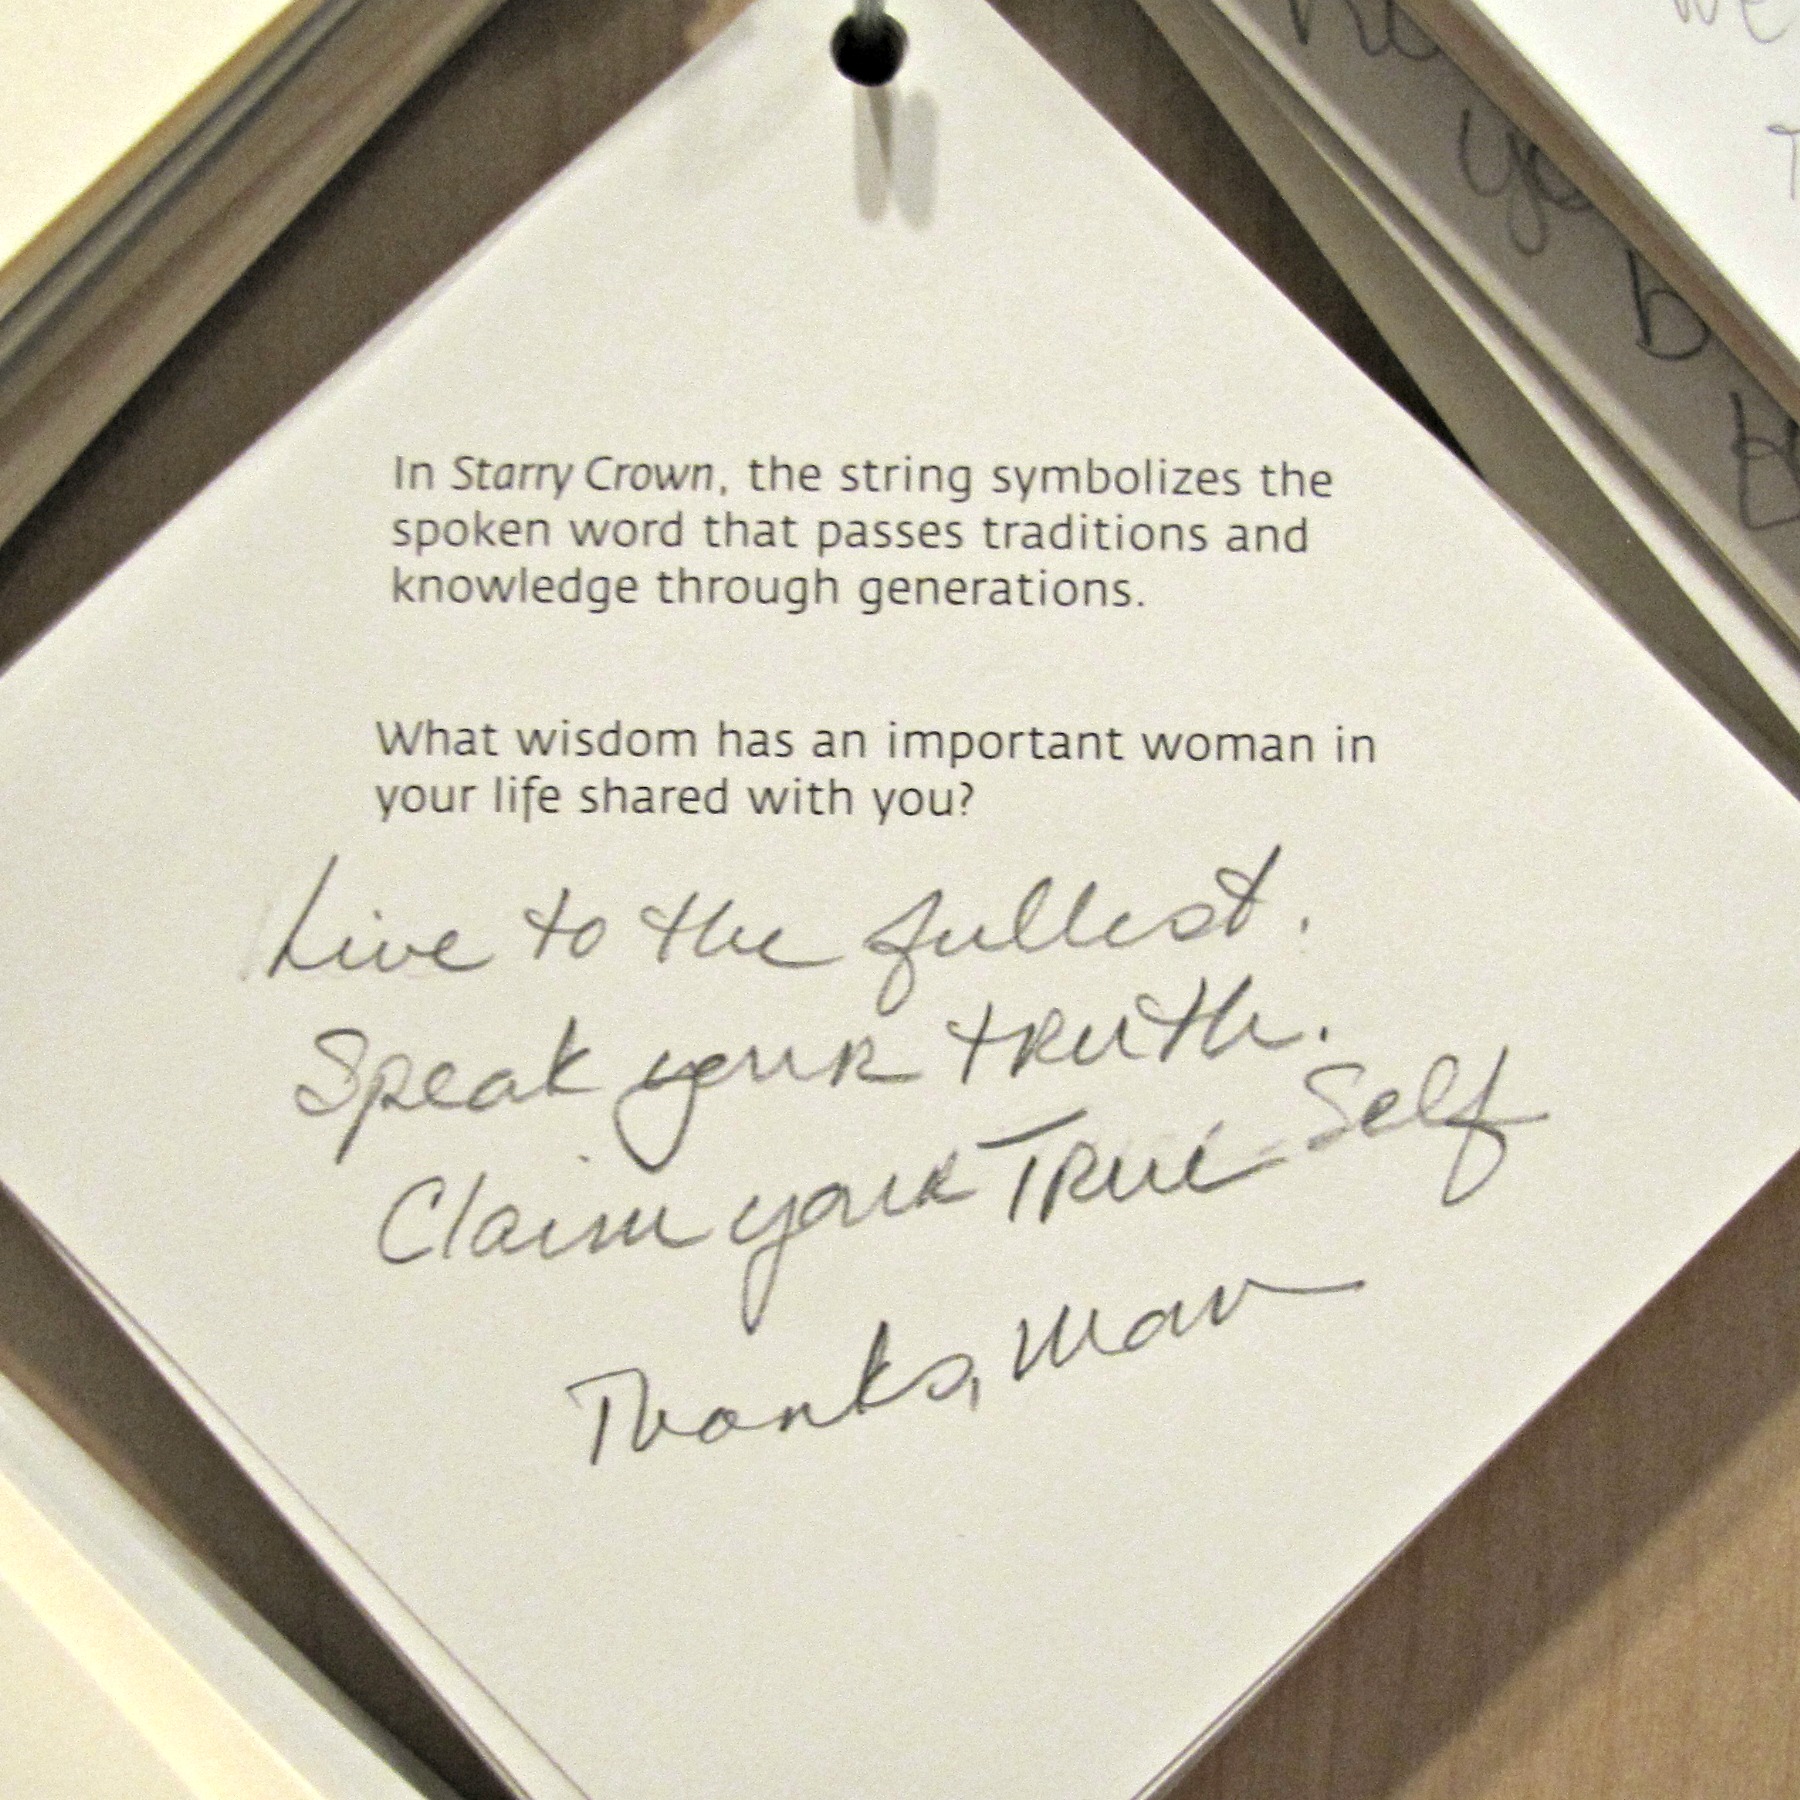 In Starry Crown, the string symbolizes the
spoken word that passes traditions and
knowledge through generations.
What wisdom has an important woman in
your life shared with you?
Live to the fullest.
Speak your truth.
Claim your True Self
Thanks,
yo
b